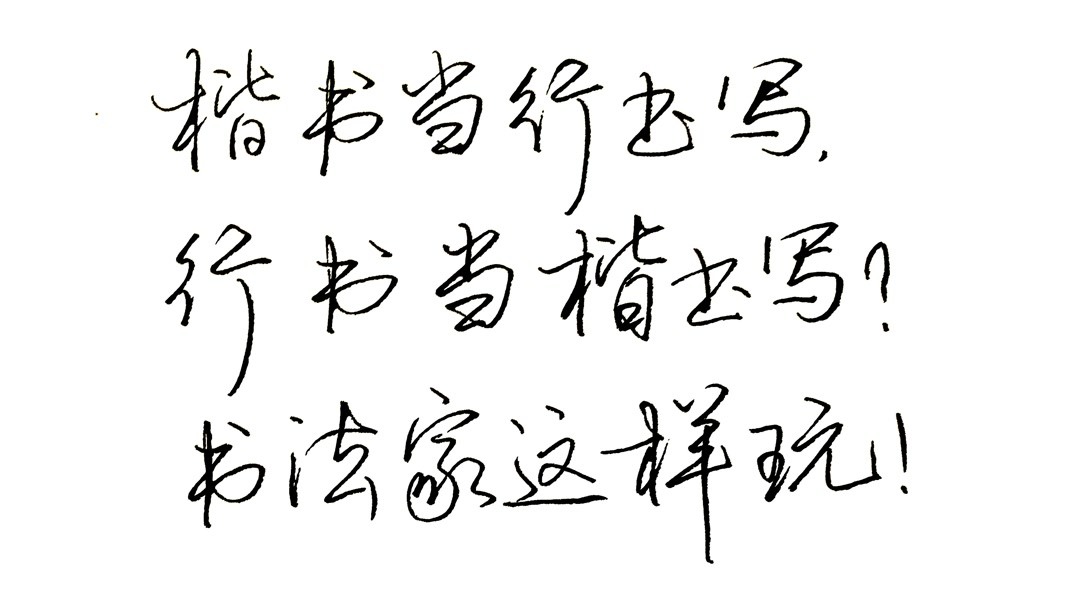 楷书当行书写，
行书当楷书写？
书法家这样玩！